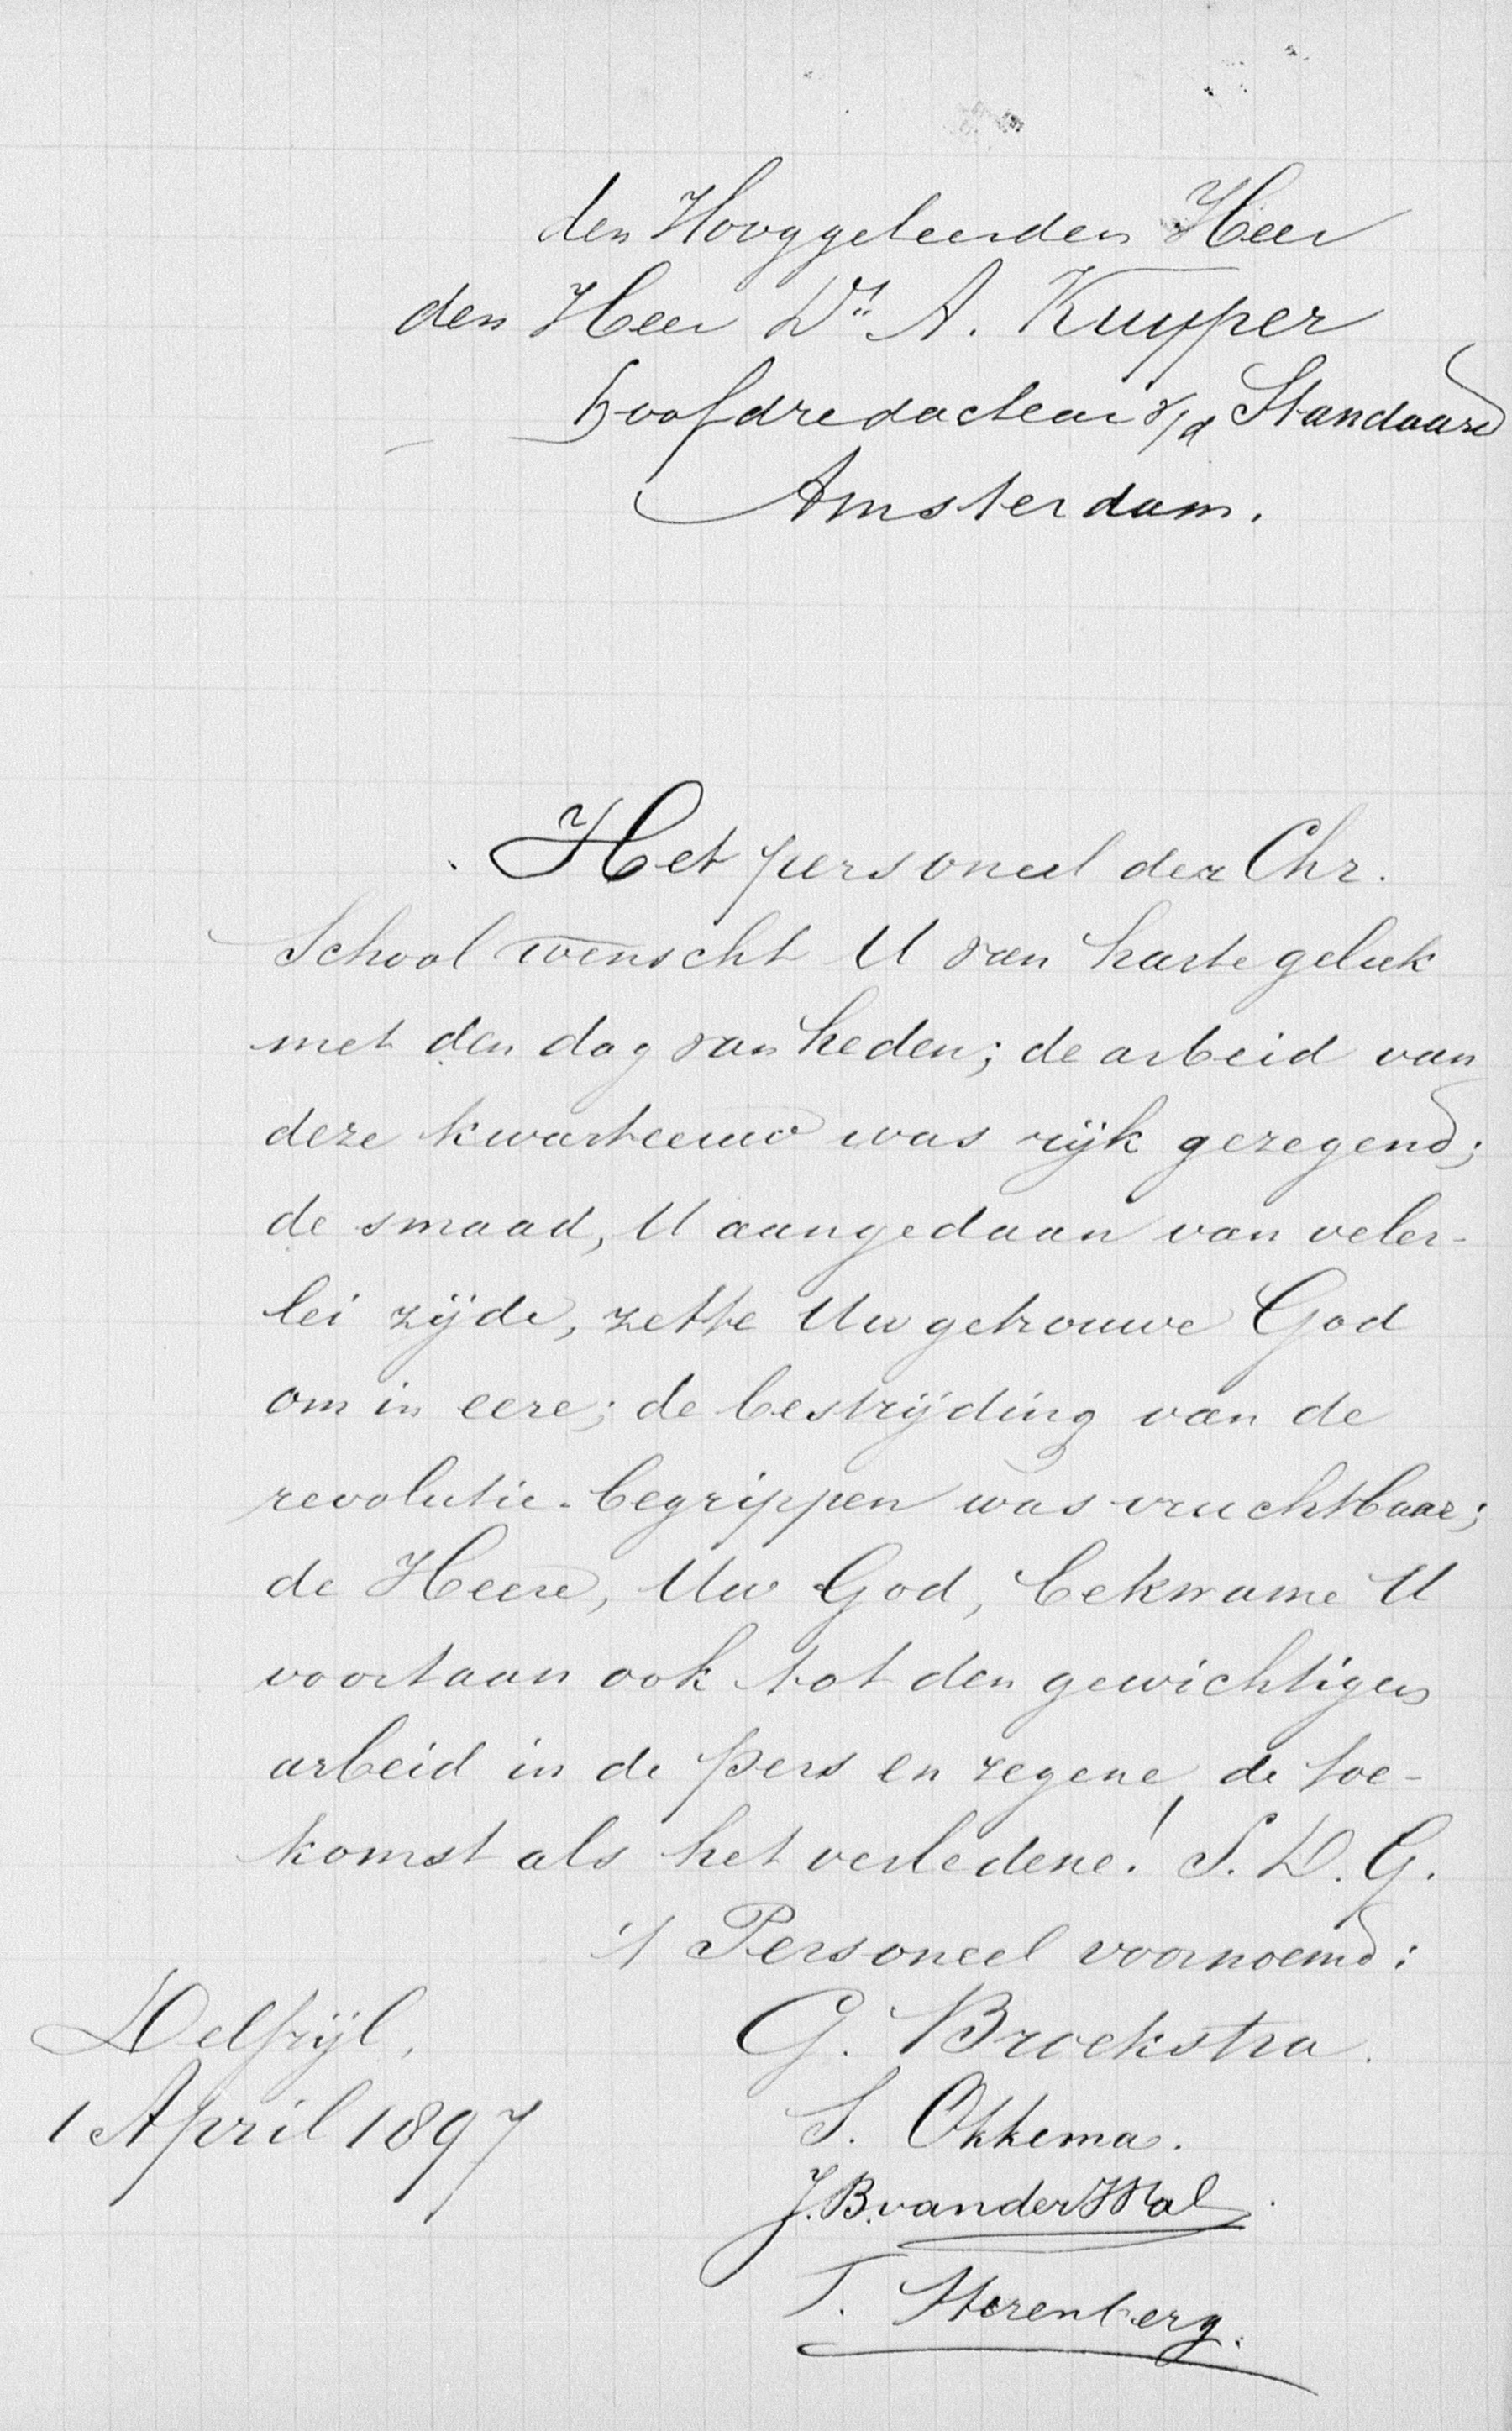 den Hooggeleerden Heer
den Heer Dr. A. Kuyper
hoofdredacteur v/d Standaard
Amsterdam.
Het personeel der Chr.
School wenscht U van harte geluk
met den dag van heden; de arbeid van
deze kwarteeuw was rijk gezegend;
de smaad, U aangedaan van veler-
lei zijde, zette Uw getrouwe God
om in eere; de bestrijding van de
revolutie-begrippen was vruchtbaar;
de Heere, Uw God, bekwame U
voortaan ook tot den gewichtigen
arbeid in de pers en zegene de toe-
komst als het verledene! S. D. G.
't Personeel voornoemd:
Delfzijl,
1 April 1897
G. Broekstra.
S. Okkema.
J. B. van der Wal
T. Sterenberg.